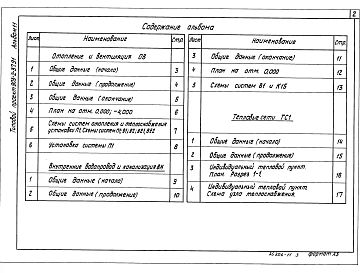 2
Содержание альбома
Лист Наименование Стр.
Отопление и вентиляция ОВ
1 Общие данные (начало) 3
2 Общие данные (продолжение) 4
3 Общие данные (окончание) 5
4 План на отм. 0,000; -4,000 6
5 Схемы систем отопления и теплоснабжения
установки П1. Схемы систем 7
6 Установка системы П1 8
Внутренние водопровод и канализация ВК
1 Общие данные (начало) 9
2 Общие данные (продолжение) 10
Лист Наименование Стр.
3 Общие данные (окончание) 11
4 План на отм. 0,000 12
5 Схемы систем В1 и К1Б 13
Тепловые сети ТС1
1 Общие данные (начало) 14
2 Общие данные (продолжение) 15
3 Индивидуальный тепловой пункт.
План. Разрез 1-1. 16
4 Индивидуальный тепловой пункт.
Схема узла теплоснабжения. 17
Типовой проект Альбом
3 формат А3